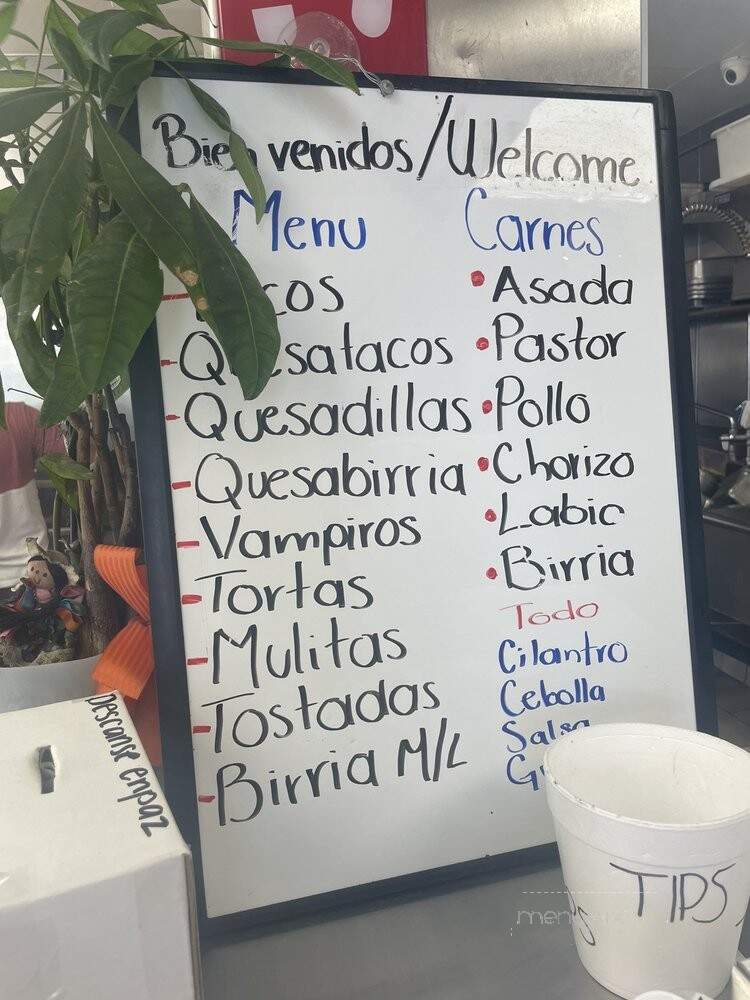 Bienvenidos/Welcome
Menu
- Tacos
- Quesatacos
- Quesadillas
- Quesabirria
- Vampiros
- Tortas
- Mulitas
- Tostadas
- Birria M/L
Carnes
• Asada
• Pastor
• Pollo
• Chorizo
• Labio
• Birria
Todo
Cilantro
Cebolla
Salsa
Descanse enpaz
TIPS